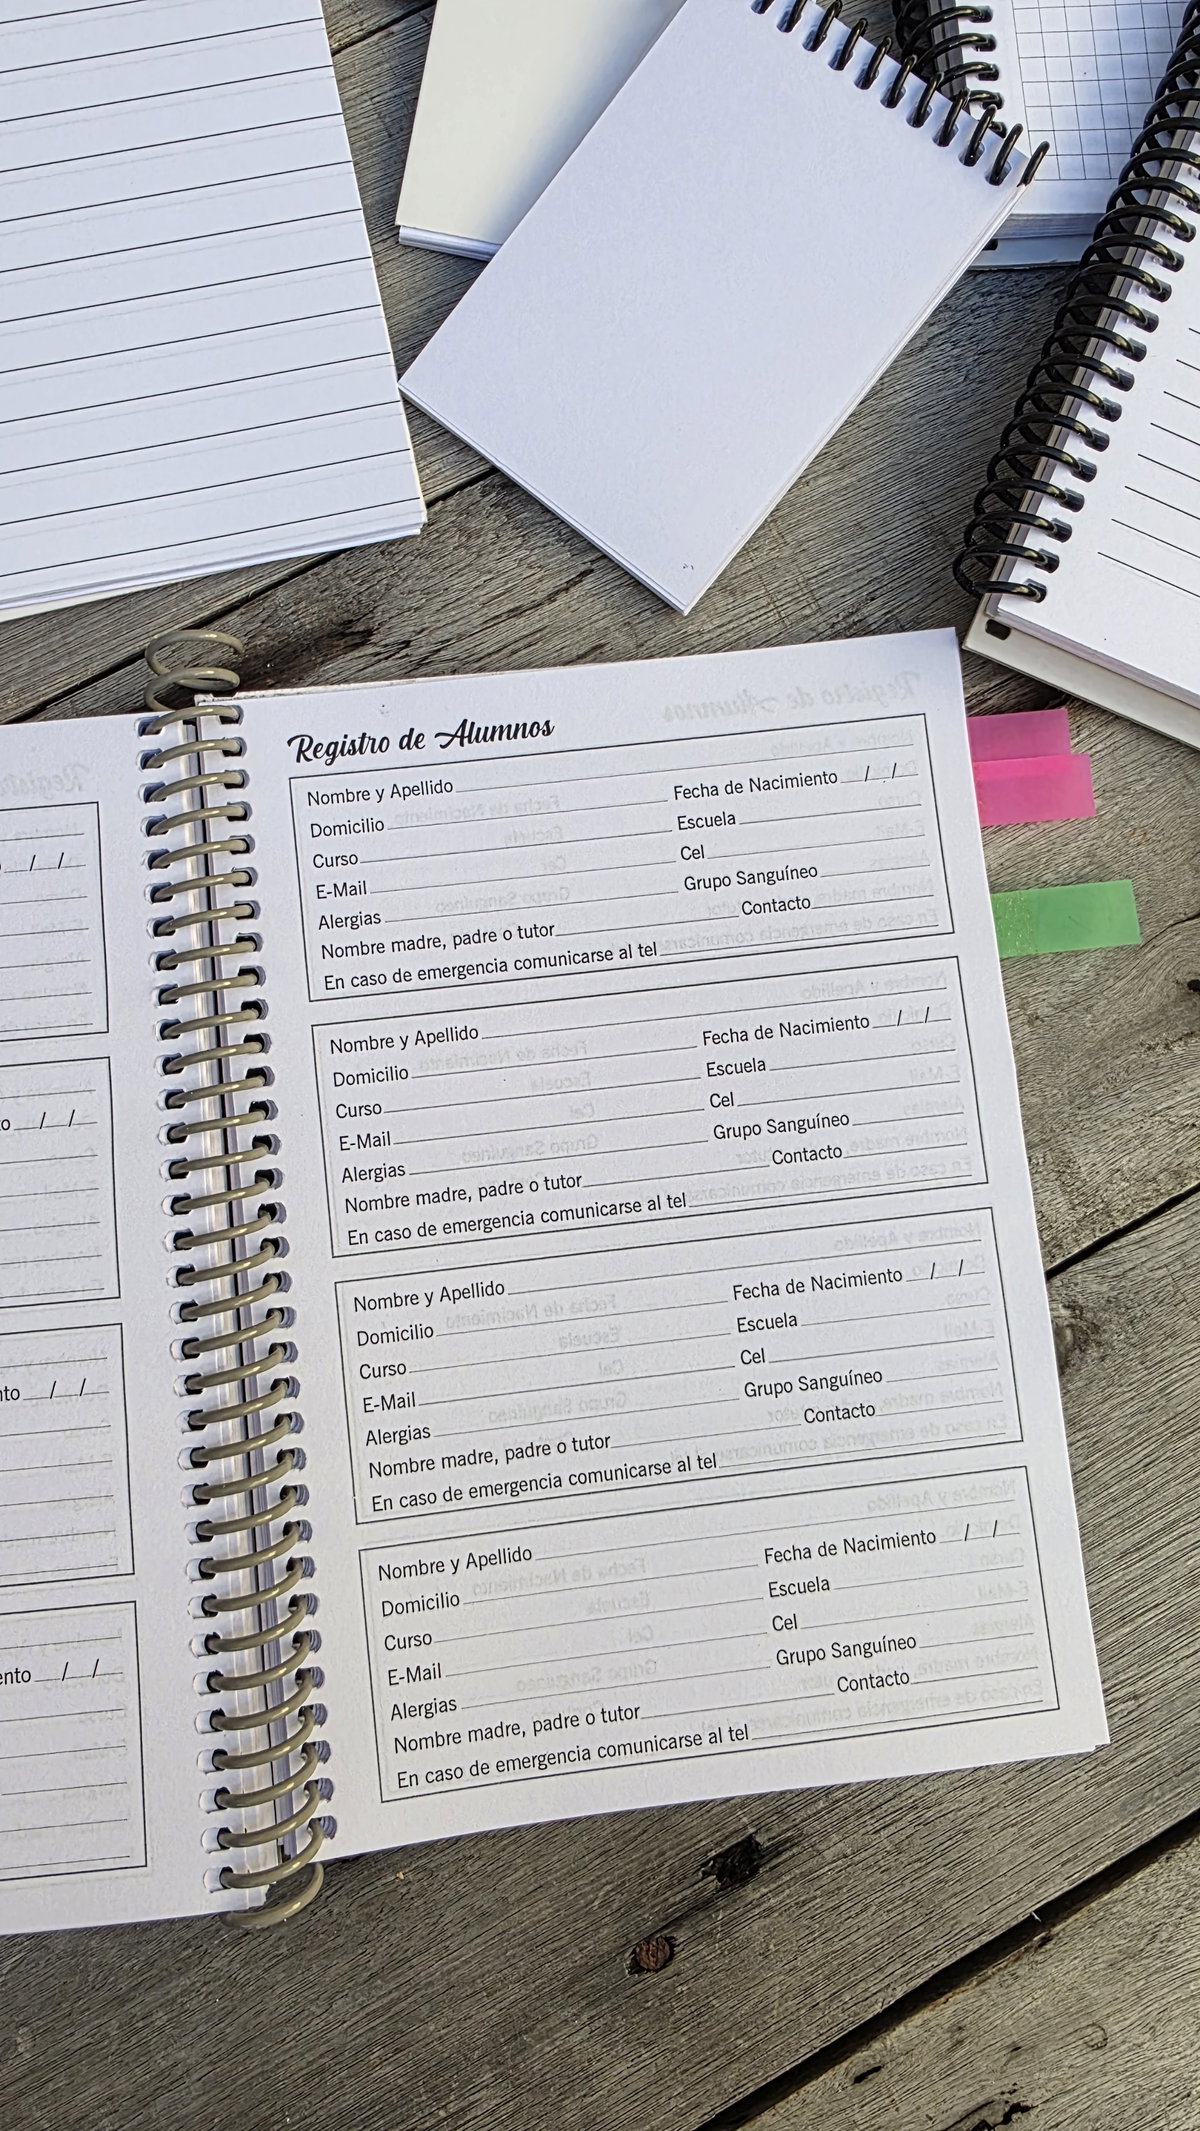 Registro de Alumnos
Nombre y Apellido
Domicilio Fecha de Nacimiento / /
Curso Escuela
E-Mail Cel
Alergias Grupo Sanguíneo
Nombre madre, padre o tutor Contacto
En caso de emergencia comunicarse al tel
Nombre y Apellido
Domicilio Fecha de Nacimiento / /
Curso Escuela
E-Mail Cel
Alergias Grupo Sanguíneo
Nombre madre, padre o tutor Contacto
En caso de emergencia comunicarse al tel
Nombre y Apellido
Domicilio Fecha de Nacimiento / /
Curso Escuela
E-Mail Cel
Alergias Grupo Sanguíneo
Nombre madre, padre o tutor Contacto
En caso de emergencia comunicarse al tel
Nombre y Apellido
Domicilio Fecha de Nacimiento / /
Curso Escuela
E-Mail Cel
Alergias Grupo Sanguíneo
Nombre madre, padre o tutor Contacto
En caso de emergencia comunicarse al tel